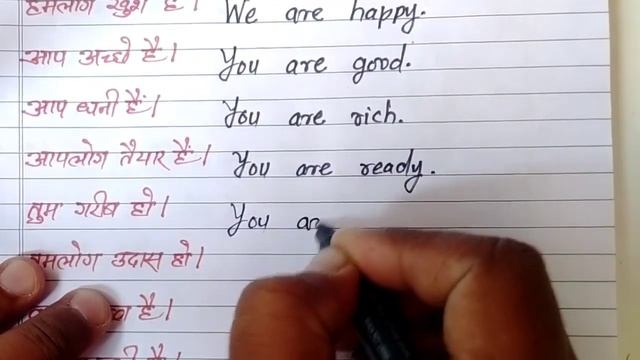 हमलोग खुश हैं। We are happy.
आप अच्छे हैं। You are good.
आप धनी हैं। You are rich.
आपलोग तैयार हैं। You are ready.
तुम गरीब हो। You
तुमलोग उदास हो।
है।